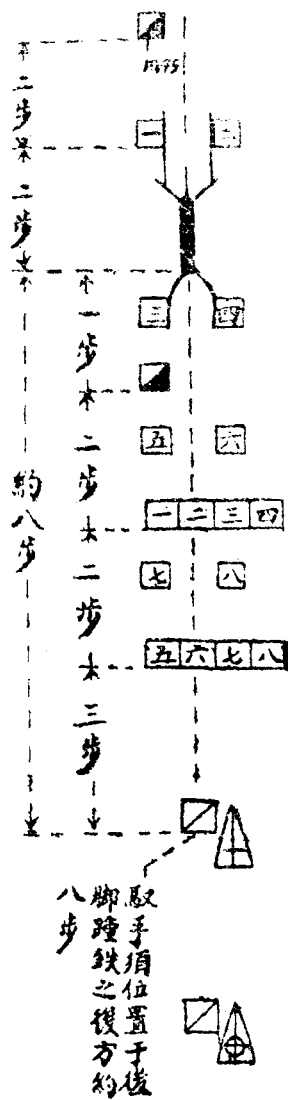 二步
二步
約八步
一步
二步
二步
三步
一
二
三
四
五
六
一二三四
七
八
五六七八
馭手須位置于後
脚踵鉄之後方約
八步